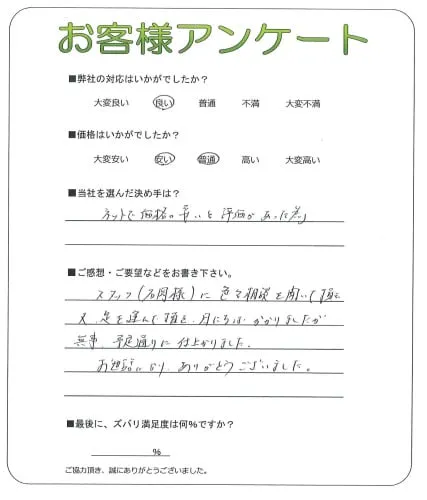 お客様アンケート
■弊社の対応はいかがでしたか？
大変良い 良い 普通 不満 大変不満
■価格はいかがでしたか？
大変安い 安い 普通 高い 大変高い
■当社を選んだ決め手は？
ネットで価格の安いと評価があった為
■ご感想・ご要望などをお書き下さい。
スタッフ(石岡様)に色々相談を聞いて頂き
又、足を運んで頂き、 かかりましたが
無事、予定通りに仕上がりました。
お世話になり、ありがとうございました。
■最後に、ズバリ満足度は何％ですか？
％
ご協力頂き、誠にありがとうございました。